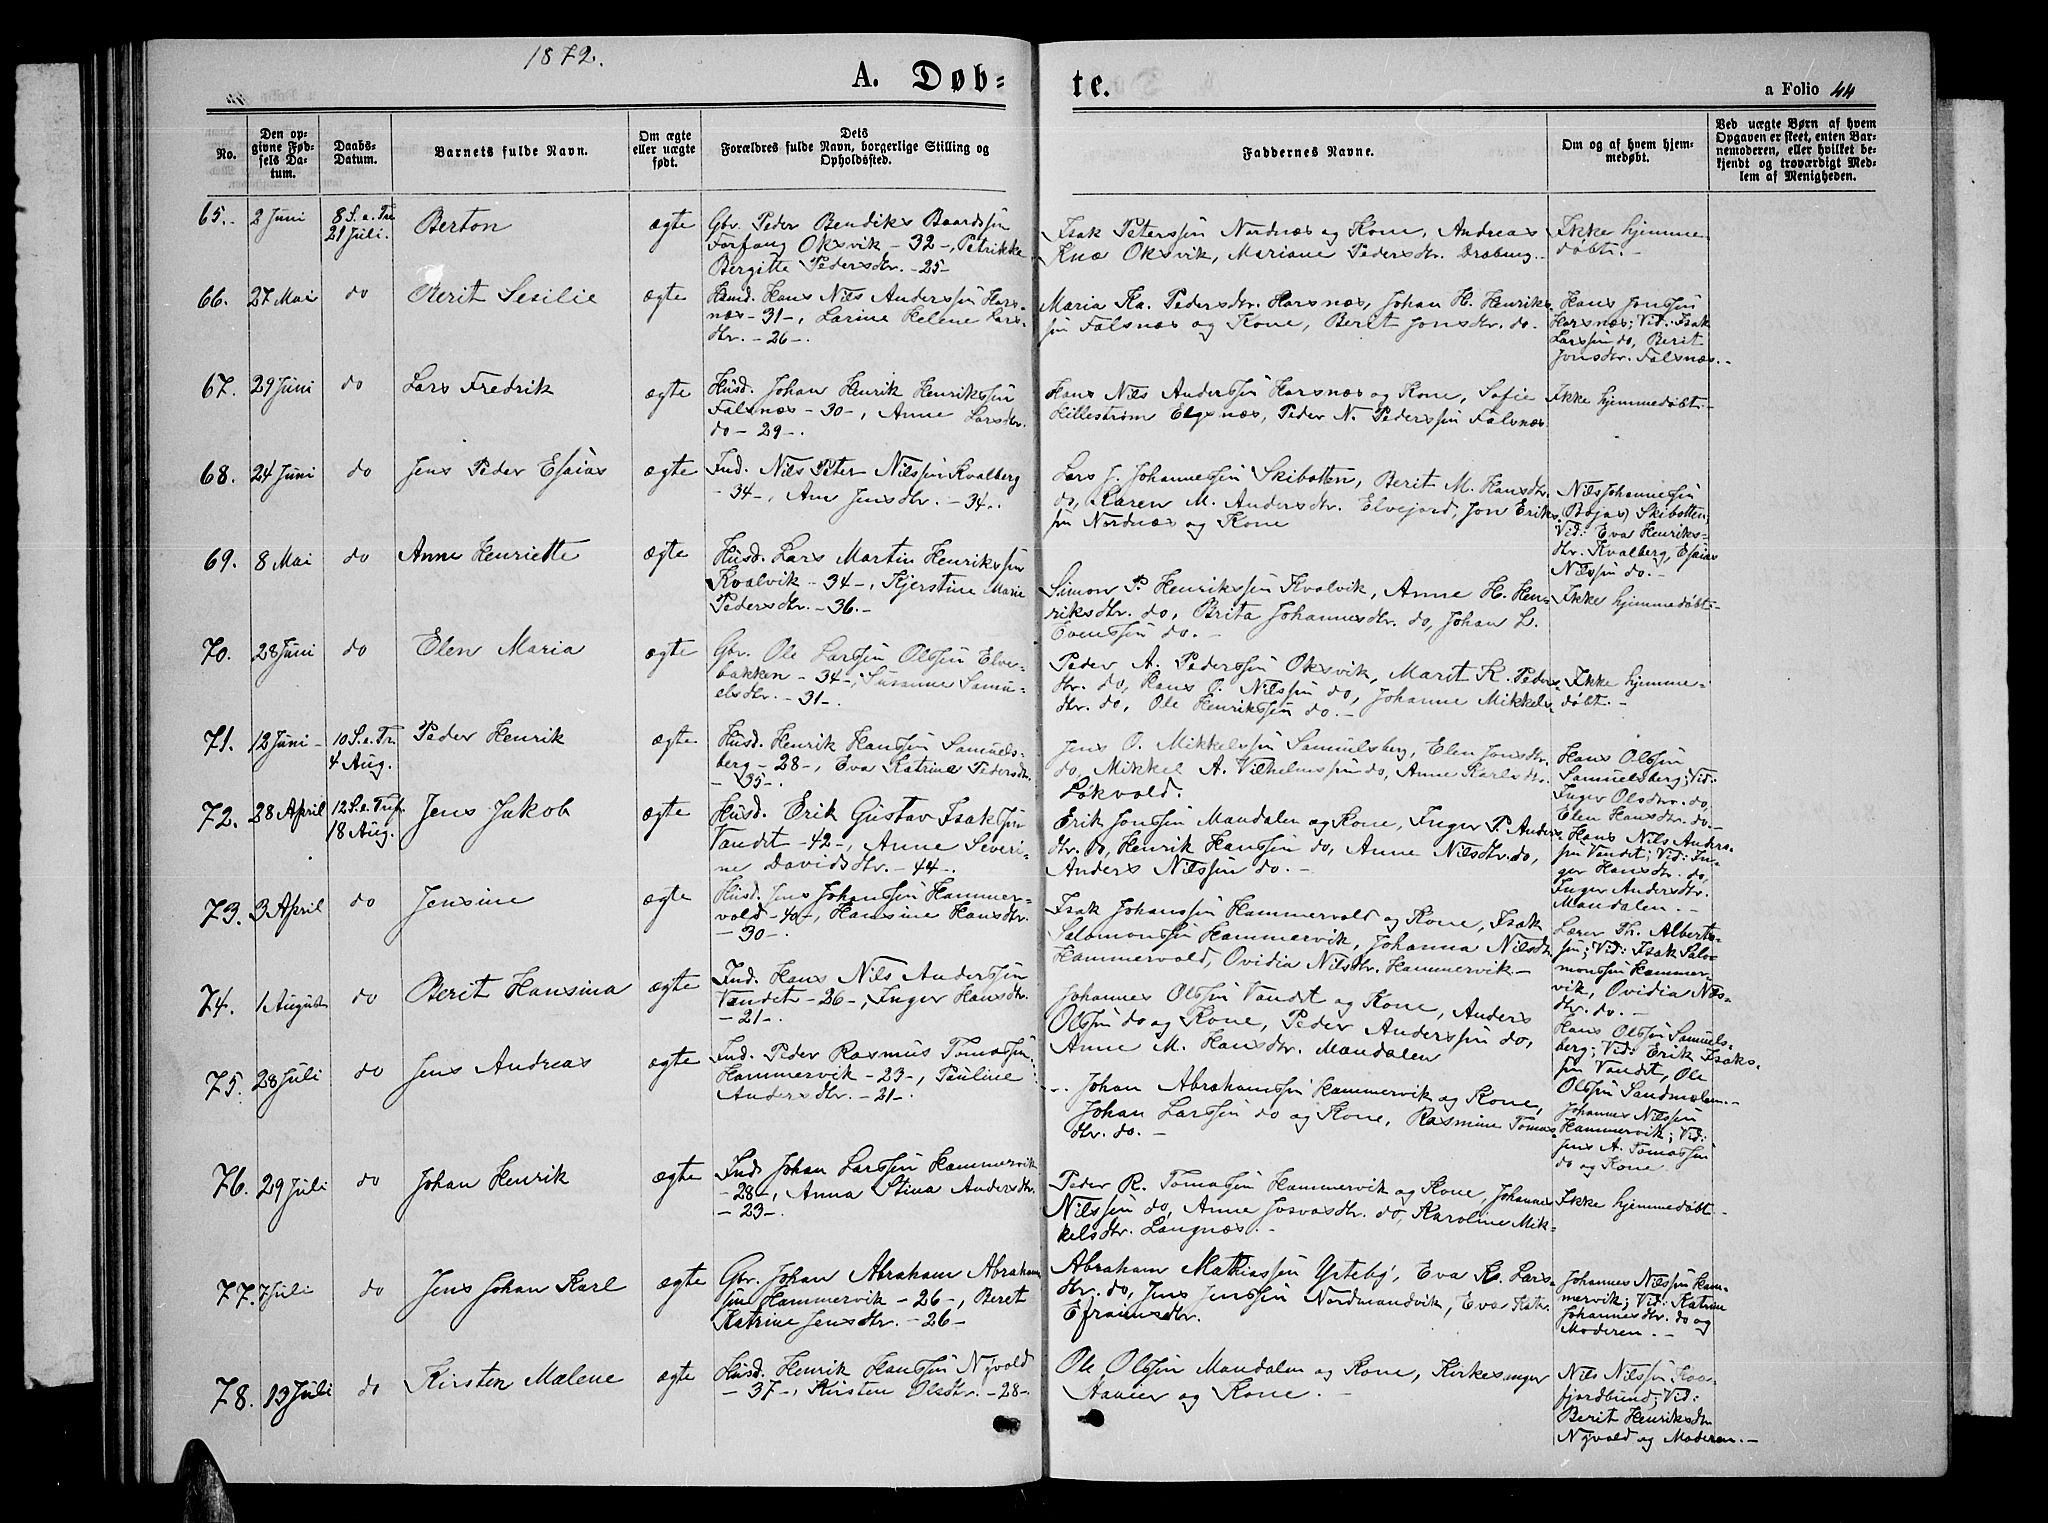 1872.
A. Døb=
te.
a Folio 44
No.
Den op-
givne Fød-
sels Da-
tum.
Daabs-
Datum.
Barnets fulde Navn.
Om ægte
eller uægte
født.
Dets
Forældres fulde Navn, borgerlige Stilling og
Opholdssted.
Faddernes Navne.
Om og af hvem hjem-
medøbt.
Ved uægte Børn af hvem
Opgaven er skeet, enten Bar-
nemoderen, eller hvilket be-
kjendt og troværdigt Med-
lem af Menigheden.
65. 2 Juni
8 S. e. Tr.
21 Juli.
Berton
ægte
Gbr. Peder Bendiks Baardssøn
Forfang Oksvik - 32 -, Petrikke
Bergitte Pedersdtr. - 25 -
Isak Peterssøn Nordnæs og Kone, Andreas
Knæ Oksvik, Mariane Pedersdtr.
Ikke hjemme
døbt. -
66. 27 Mai do
Berit Sesilie
ægte
Husd. Hans Nils Anderssøn Hors-
næs - 31 -, Larine Helene Lars-
dtr. - 26 -.
Maria Ka. Pedersdtr. Horsnæs, Johan H. Henriks-
søn Falsnæs og Kone, Berit Jonsdtr. do.
Hans Jonssøn
Horsnæs; Vid: Isak
Larssøn do, Berit
Jonsdtr. Falsnæs. -
67. 29 Juni do
Lars Fredrik
ægte
Husd. Johan Henrik Henrikssøn
Falsnæs - 30 -, Anne Larsdtr.
do - 29 -.
Hans Nils Anderssøn Horsnæs og Kone, Sofie
Hillestrøm Elgsnæs, Peder N. Pederssøn Falsnæs
Ikke hjemmedøbt -
68. 24 Juni do
Jens Peder Esaias
ægte
Ind. Nils Peter Nilssøn Kvalberg
- 34 -, Ane Jensdtr. - 34 -.
Lars J. Johannessøn Skibotten, Berit M. Hansdtr.
do, Karen M. Andersdtr. Elvejord, Jon Eriks-
søn Nordnæs og Kone
Nils Johannessøn
(Bojas) Skibotten;
Vid: Eva Henriks-
dtr. Kvalberg, Esaias
Nilssøn do. -
69. 8 Mai do
Anne Henriette
ægte
Husd. Lars Martin Henrikssøn
Kvalvik - 34 -, Kjerstine Marie
Pedersdtr. - 36. -
Simon P. Henrikssøn Kvalvik, Anne H. Hen-
riksdtr. do, Brita Johannesdtr. do, Johan L.
Evenssøn do. -
Ikke hjemmedøbt. -
70. 28 Juni do
Elen Maria
ægte
Gbr. Ole Larssøn Olssøn Elve-
bakken - 34 -, Susanne Samu-
elsdtr. - 31 -.
Peder A. Pederssøn Oksvik, Marit K. Peders-
dtr. do, Hans O. Nilssøn do, Johanne Mikkels-
dtr. do, Ole Henrikssøn do. -
Ikke hjemme-
døbt. -
71. 12 Juni -
10 S. e. Tr.
4 Aug.
Peder Henrik
ægte
Husd. Henrik Hanssøn Samuels-
berg - 28 -, Eva Katrine Pedersdtr.
- 35 -.
Jens O. Mikkelssøn Samuelsberg, Elen Jonsdtr.
do, Mikkel A. Vilhelmssøn do, Anne Karlsdtr.
Løkvold.
Hans Olssøn
Samuelsberg; Vid:
Inger Olsdtr. do,
Elen Hansdtr. do. -
72. 28 April
12 S. e. Tref.
18 Aug.
Jens Jakob
ægte
Husd. Erik Gustav Isakssøn
Vandet - 42 -, Anne Severi-
ne Davidsdtr. - 44 -.
Erik Jonssøn Mandalen og Kone, Inger P. Anders-
dtr. do, Henrik Hanssøn do, Anne Nilsdtr. do,
Anders Nilssøn do. -
Hans Nils Anders-
søn Vandet; Vid: In-
ger Hansdtr. do,
Inger Andersdtr.
Mandalen. -
73. 3 April do
Jensine
ægte
Husd. Jens Johanssøn Hammer-
vold - 40 -, Hansine Hansdtr.
- 30 -.
Isak Johanssøn Hammervold og Kone, Isak
Salomonssøn Hammervik, Johanna Nilsdtr.
Hammervold, Ovidia Nilsdtr. Hammervik. -
Lærer Th. Alberts-
søn; Vid: Isak Salo-
monssøn Hammer-
vik, Ovidia Nils-
dtr. do. -
74. 1 August do
Berit Hansina
ægte
Ind. Hans Nils Anderssøn
Vandet - 26 -, Inger Hansdtr.
- 21 -.
Johannes Olssøn Vandet og Kone, Anders
Olssøn do og Kone, Peder Anderssøn do,
Anne M. Hansdtr. Mandalen
Hans Olssøn Samuels-
berg; Vid: Erik Isaks-
søn Vandet, Ole
Olssøn Sandmælen. -
75. 28 Juli do
Jens Andreas
ægte
Ind. Peder Rasmus Tomassøn
Hammervik - 23 -, Pauline
Andersdtr. - 21 -.
Johan Abrahamssøn Hammervik og Kone,
Johan Larssøn do og Kone, Rasmine Tomas-
dtr. do. -
Johannes Nilssøn
Hammervik; Vid:
Jens A. Tomassøn
do og Kone.
76. 29 Juli do
Johan Henrik
ægte
Ind. Johan Larssøn Hammervik
- 28 -, Anna Stina Andersdtr.
- 23 -.
Peder R. Tomassøn Hammervik og Kone, Johannes
Nilssøn do, Anne Josvasdtr. do, Karoline Mik-
kelsdtr. Langnæs. -
Ikke hjemmedøbt. -
77. 7 Juli do
Jens Johan Karl
ægte
Gbr. Johan Abraham Abraham-
søn Hammervik - 26 -, Beret
Katrine Jensdtr. - 26 -
Abraham Mathiassøn Ytteby, Eva K. Lars-
dtr. do, Jens Jenssøn Nordmandvik, Eva Katr.
Efraimsdtr.
Johannes Nilssøn Ham-
mervik; Vid: Katrine
Johannesdtr. do og
Moderen. -
78. 13 Juli do
Kirsten Malene
ægte
Husd. Henrik Hanssøn Nyvold
- 37 -, Kirsten Olsdtr. - 28 -
Ole Olssøn Mandalen og Kone, Kirkesanger
og Kone. -
Nils Nilssøn Kaa-
fjordbund; Vid:
Berit Henriksdtr
Nyvold og Moderen. -